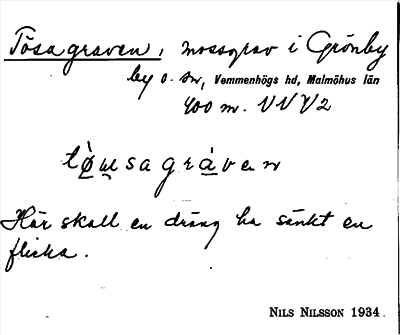 Tösagraven, mossgrav i Grönby
by o. sn, Vemmenhögs hd, Malmöhus län
400 m. VNV 2
tø̀u̯sagràven
Här skall en dräng ha sänkt en
flicka.
NILS NILSSON 1934.